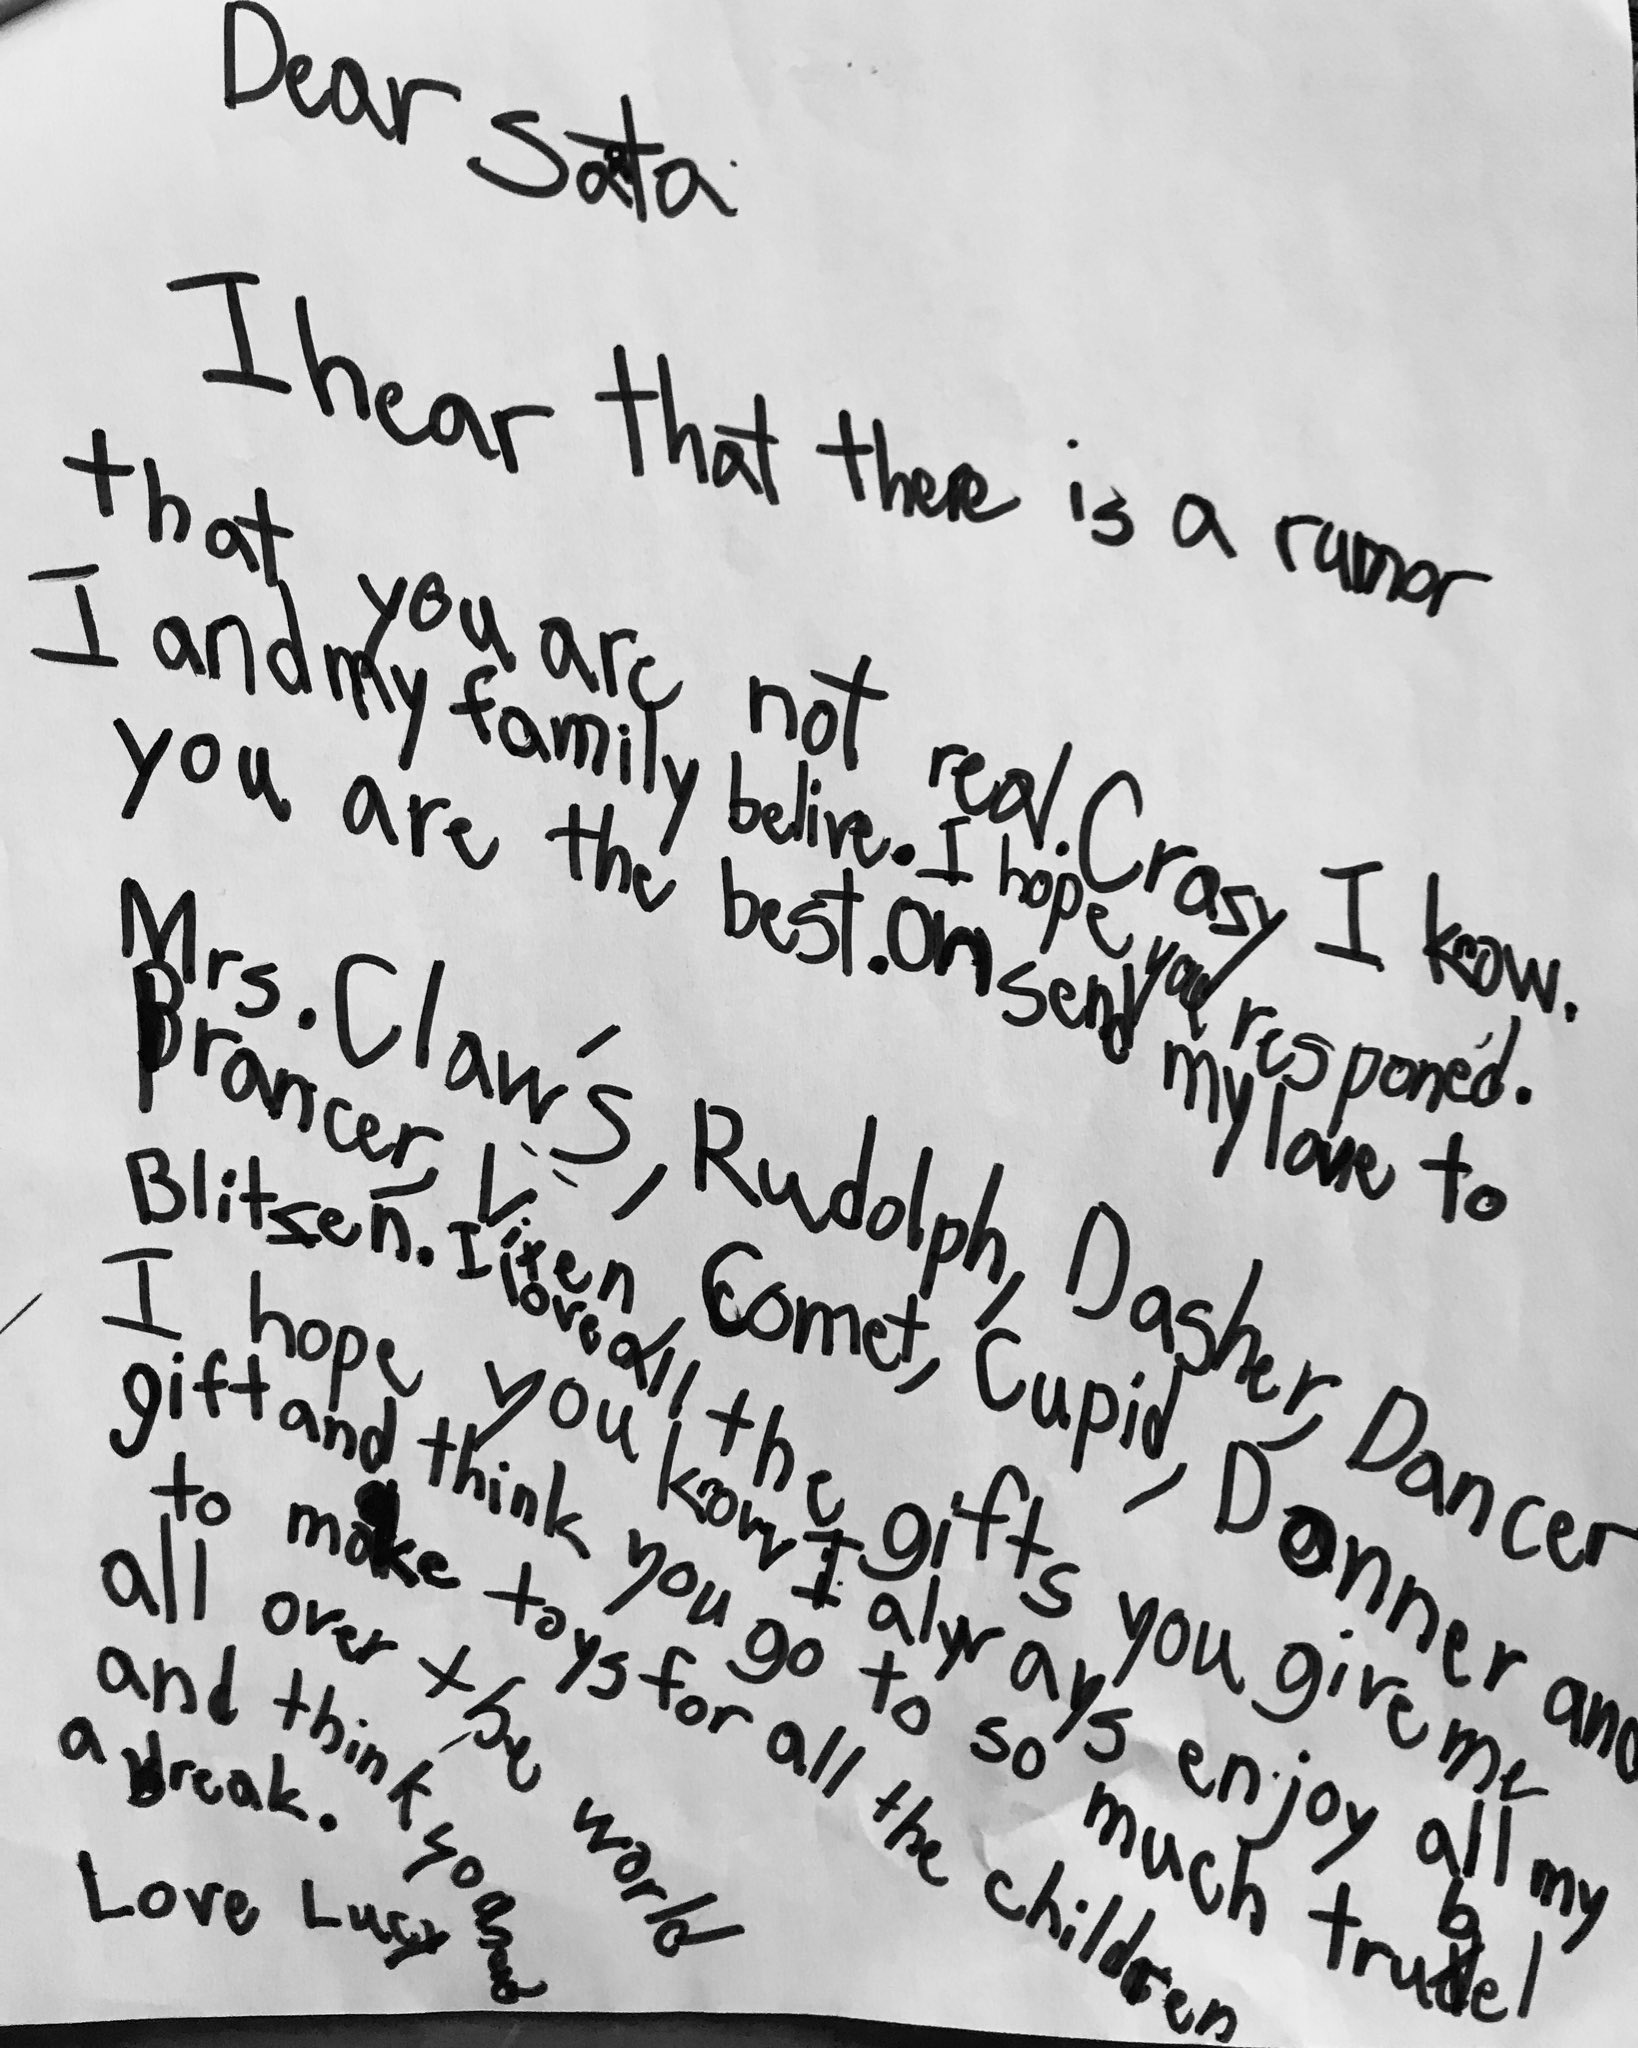 Dear Sata
I hear that there is a rumor
that you are not real. Crasy I know.
I and my family belive. I hope you responed.
you are the best. Oh send my love to
Mrs. Claw's, Rudolph, Dasher, Dancer
Prancer, Vixen, Comet, Cupid, Donner and
Blitsen. I love all the gifts you give me
I hope you know I always enjoy all my
gift and think you go to so much trubel
to make toys for all the children
all over the world
and think you
a break.
Love Lucy